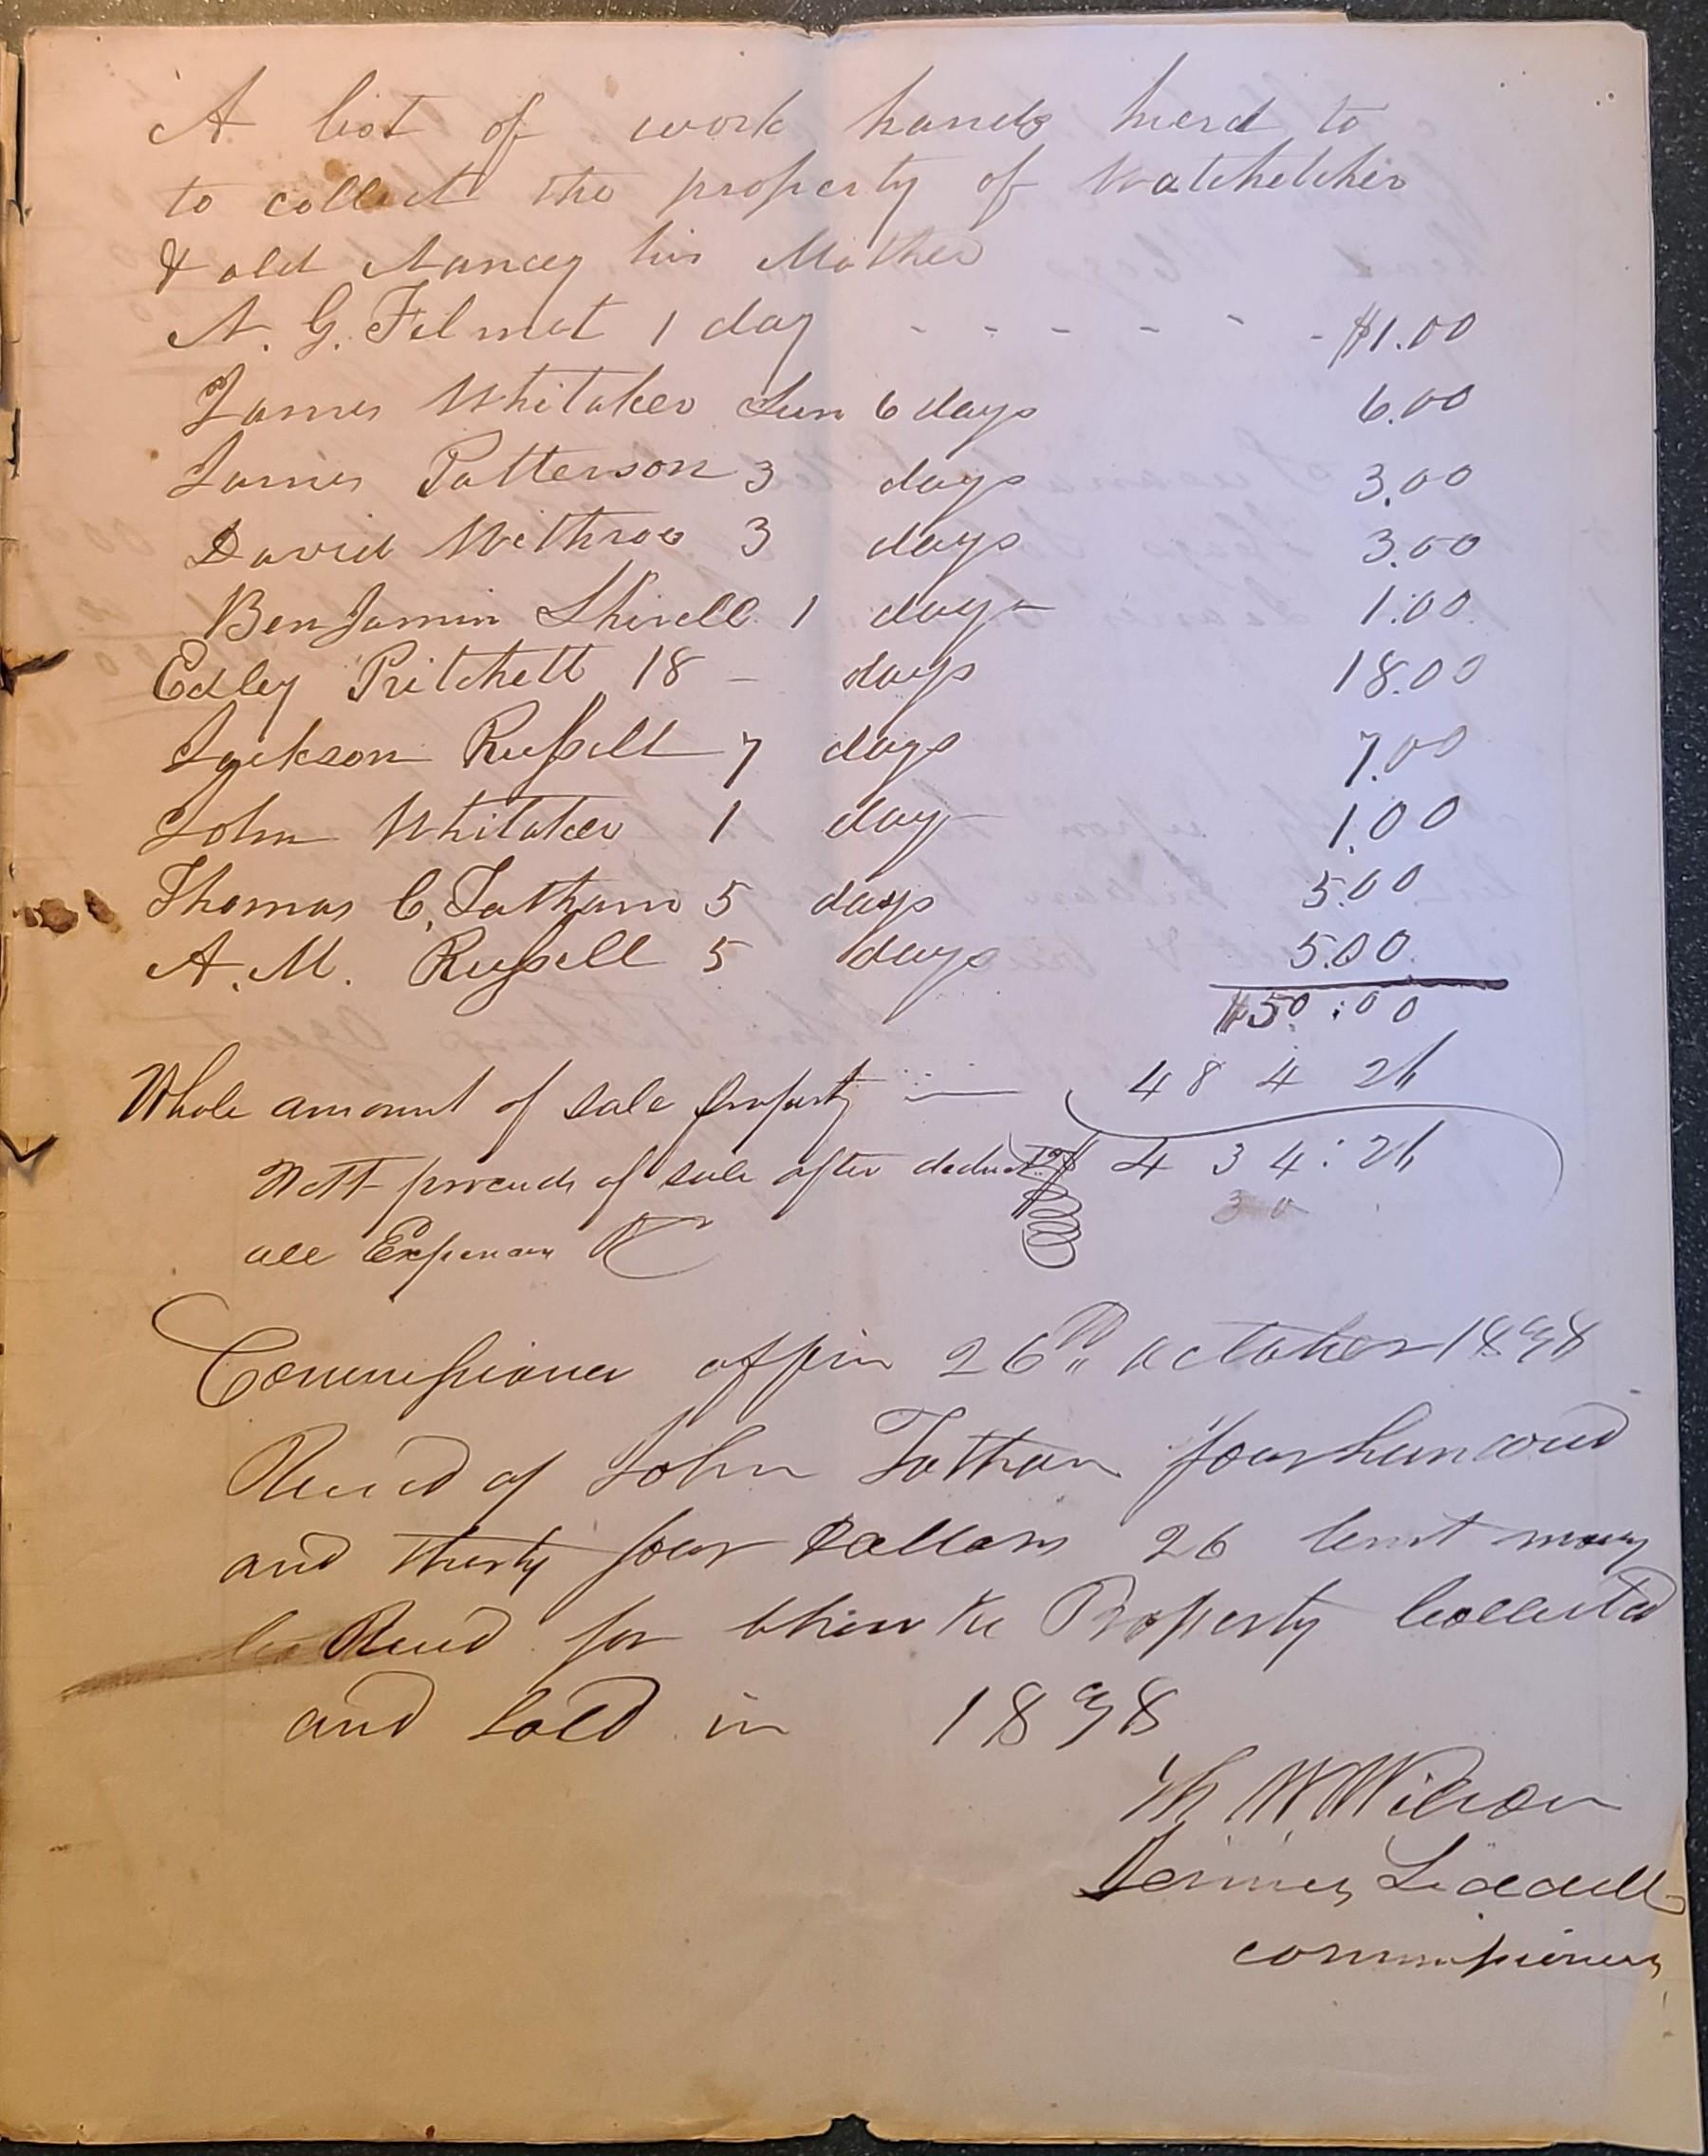 A list of work hands hierd to
to collect the property of Watchetcher
& old Nancy his Mother
N. G. Filmet 1 day - - - - - - $1.00
James Whitaker Sun 6 days 6.00
James Patterson 3 days 3.00
David Withrow 3 days 3.00
BenJamin Shirell 1 day 1.00
Edley Pritchett 18 - days 18.00
Jackson Russell 7 days 7.00
John Whitaker 1 day 1.00
Thomas C. Tatham 5 days 5.00
A. M. Russell 5 days 5.00
$50:00
Whole amount of sale property 484 26
Nett proceeds of sale after deducting $ 434:26
30
all Expences
Commissioner office 26th October 1838
Receivd of John Tatham four hundred
and thirty four Dollars 26 Cent money
he Recd for the Property Collected
and Sold in 1838
Th. W. Wilson
James Liddell
commissioners